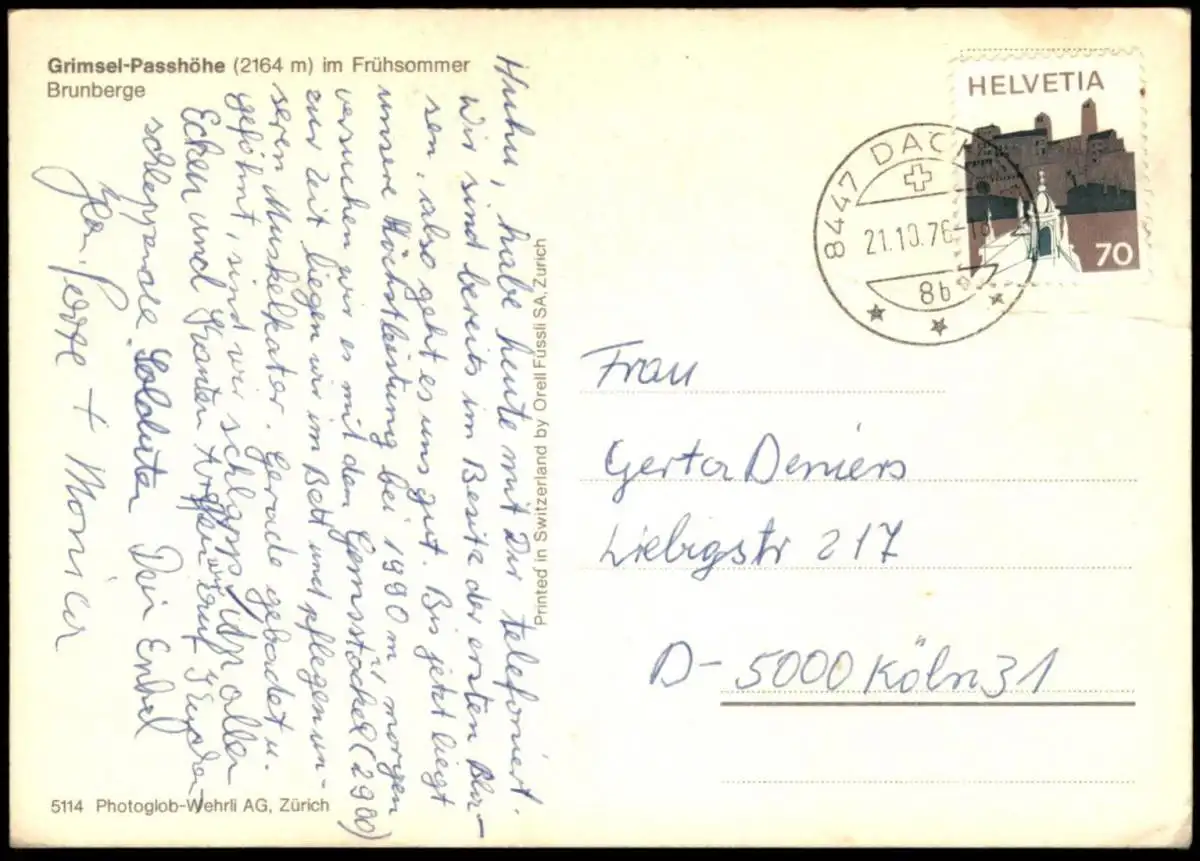 Grimsel-Passhöhe (2164 m) im Frühsommer
Brunberge
Huhu, habe heute mit Dir telefoniert.
Wir sind bereits im Besitz der ersten Bla-
sen, also geht es uns gut. Bis jetzt liegt
unsere Höchstleistung bei 1990 m, morgen
versuchen wir es mit dem Gemsstöckel (2900)
zur Zeit liegen wir im Bett und pflegen un-
seren Muskelkater. Gerade gebadet u.
geföhnt, sind wir schlapp. An allen
Ecken und Kanten
schleppende Soldaten Dein Enkel
+ Monica
Printed in Switzerland by Orell Füssli SA, Zürich
5114 Photoglob-Wehrli AG, Zürich
HELVETIA
70
8447 DACH
21.10.76-18
8b
Frau
Gerta Deniers
Liebigstr 217
D-5000 Köln 31